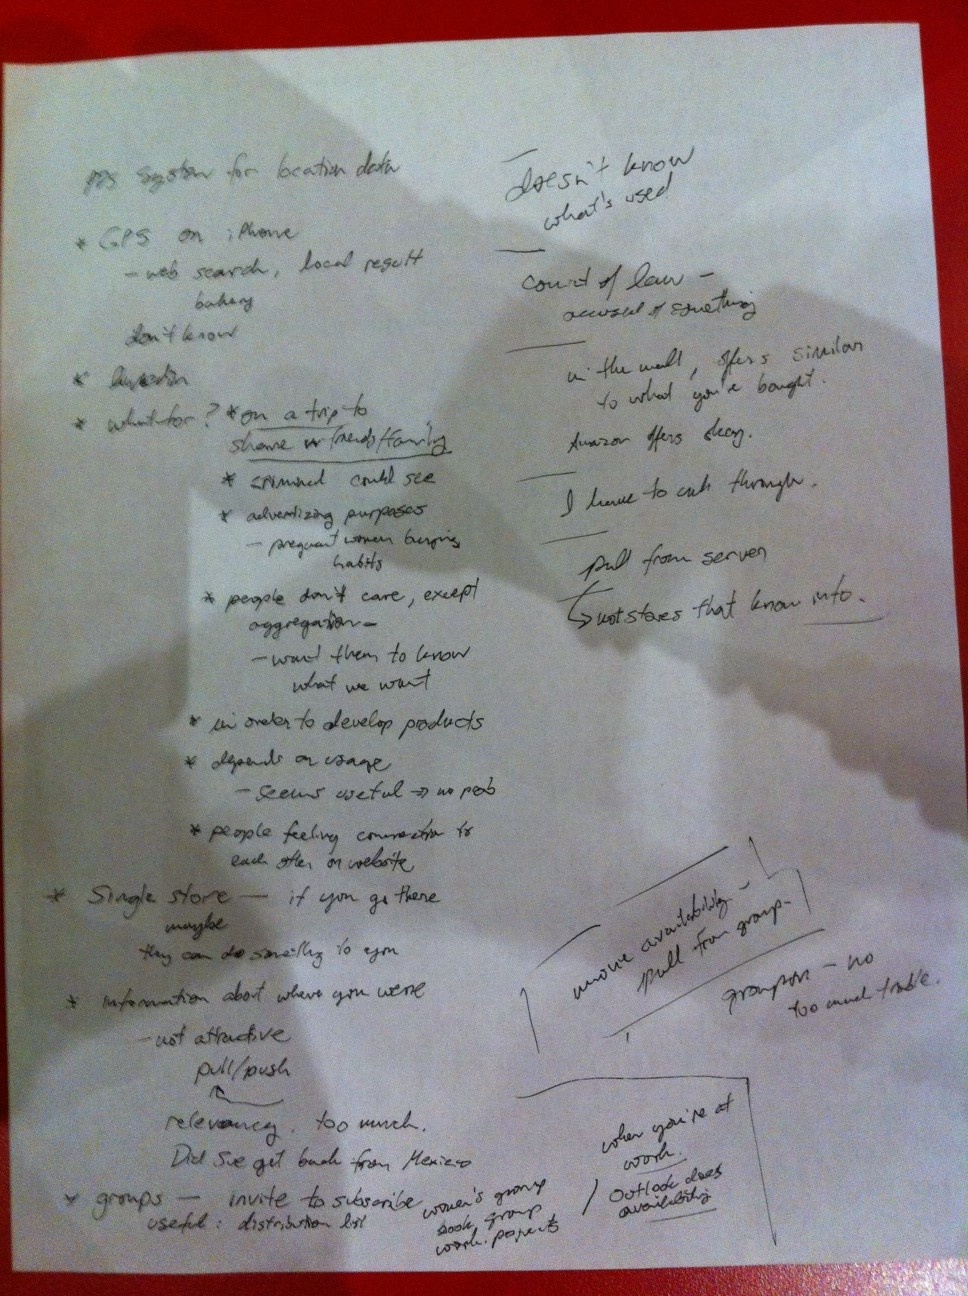 system for location data
* GPS on iPhone
- web search, local result
bakery
don't know
* linkedin
* what for? * on a trip to
share w friends/family
* criminal could see
* advertizing purposes
- pregnant women buying
habits
* people don't care, except
aggregation -
- want them to know
what we want
* in order to develop products
* depends on usage
- seems useful → no prob
* people feeling connection to
each other on website
* Single store — if you go there
maybe
they can do something to you
* Information about where you were
- not attractive
pull/push
relevancy. too much.
Did Sve get back from Mexico
* groups — invite to subscribe
useful: distribution list
women's group
book group
work projects
doesn't know
what's used
court of law -
accused of something
in the mall, offers similar
to what you've bought.
Amazon offers okay.
I have to walk through.
pull from server
↳ not stores that know info.
movie availability -
pull from group.
groupon - no
too much trouble.
when you're at
work.
Outlook does
availability